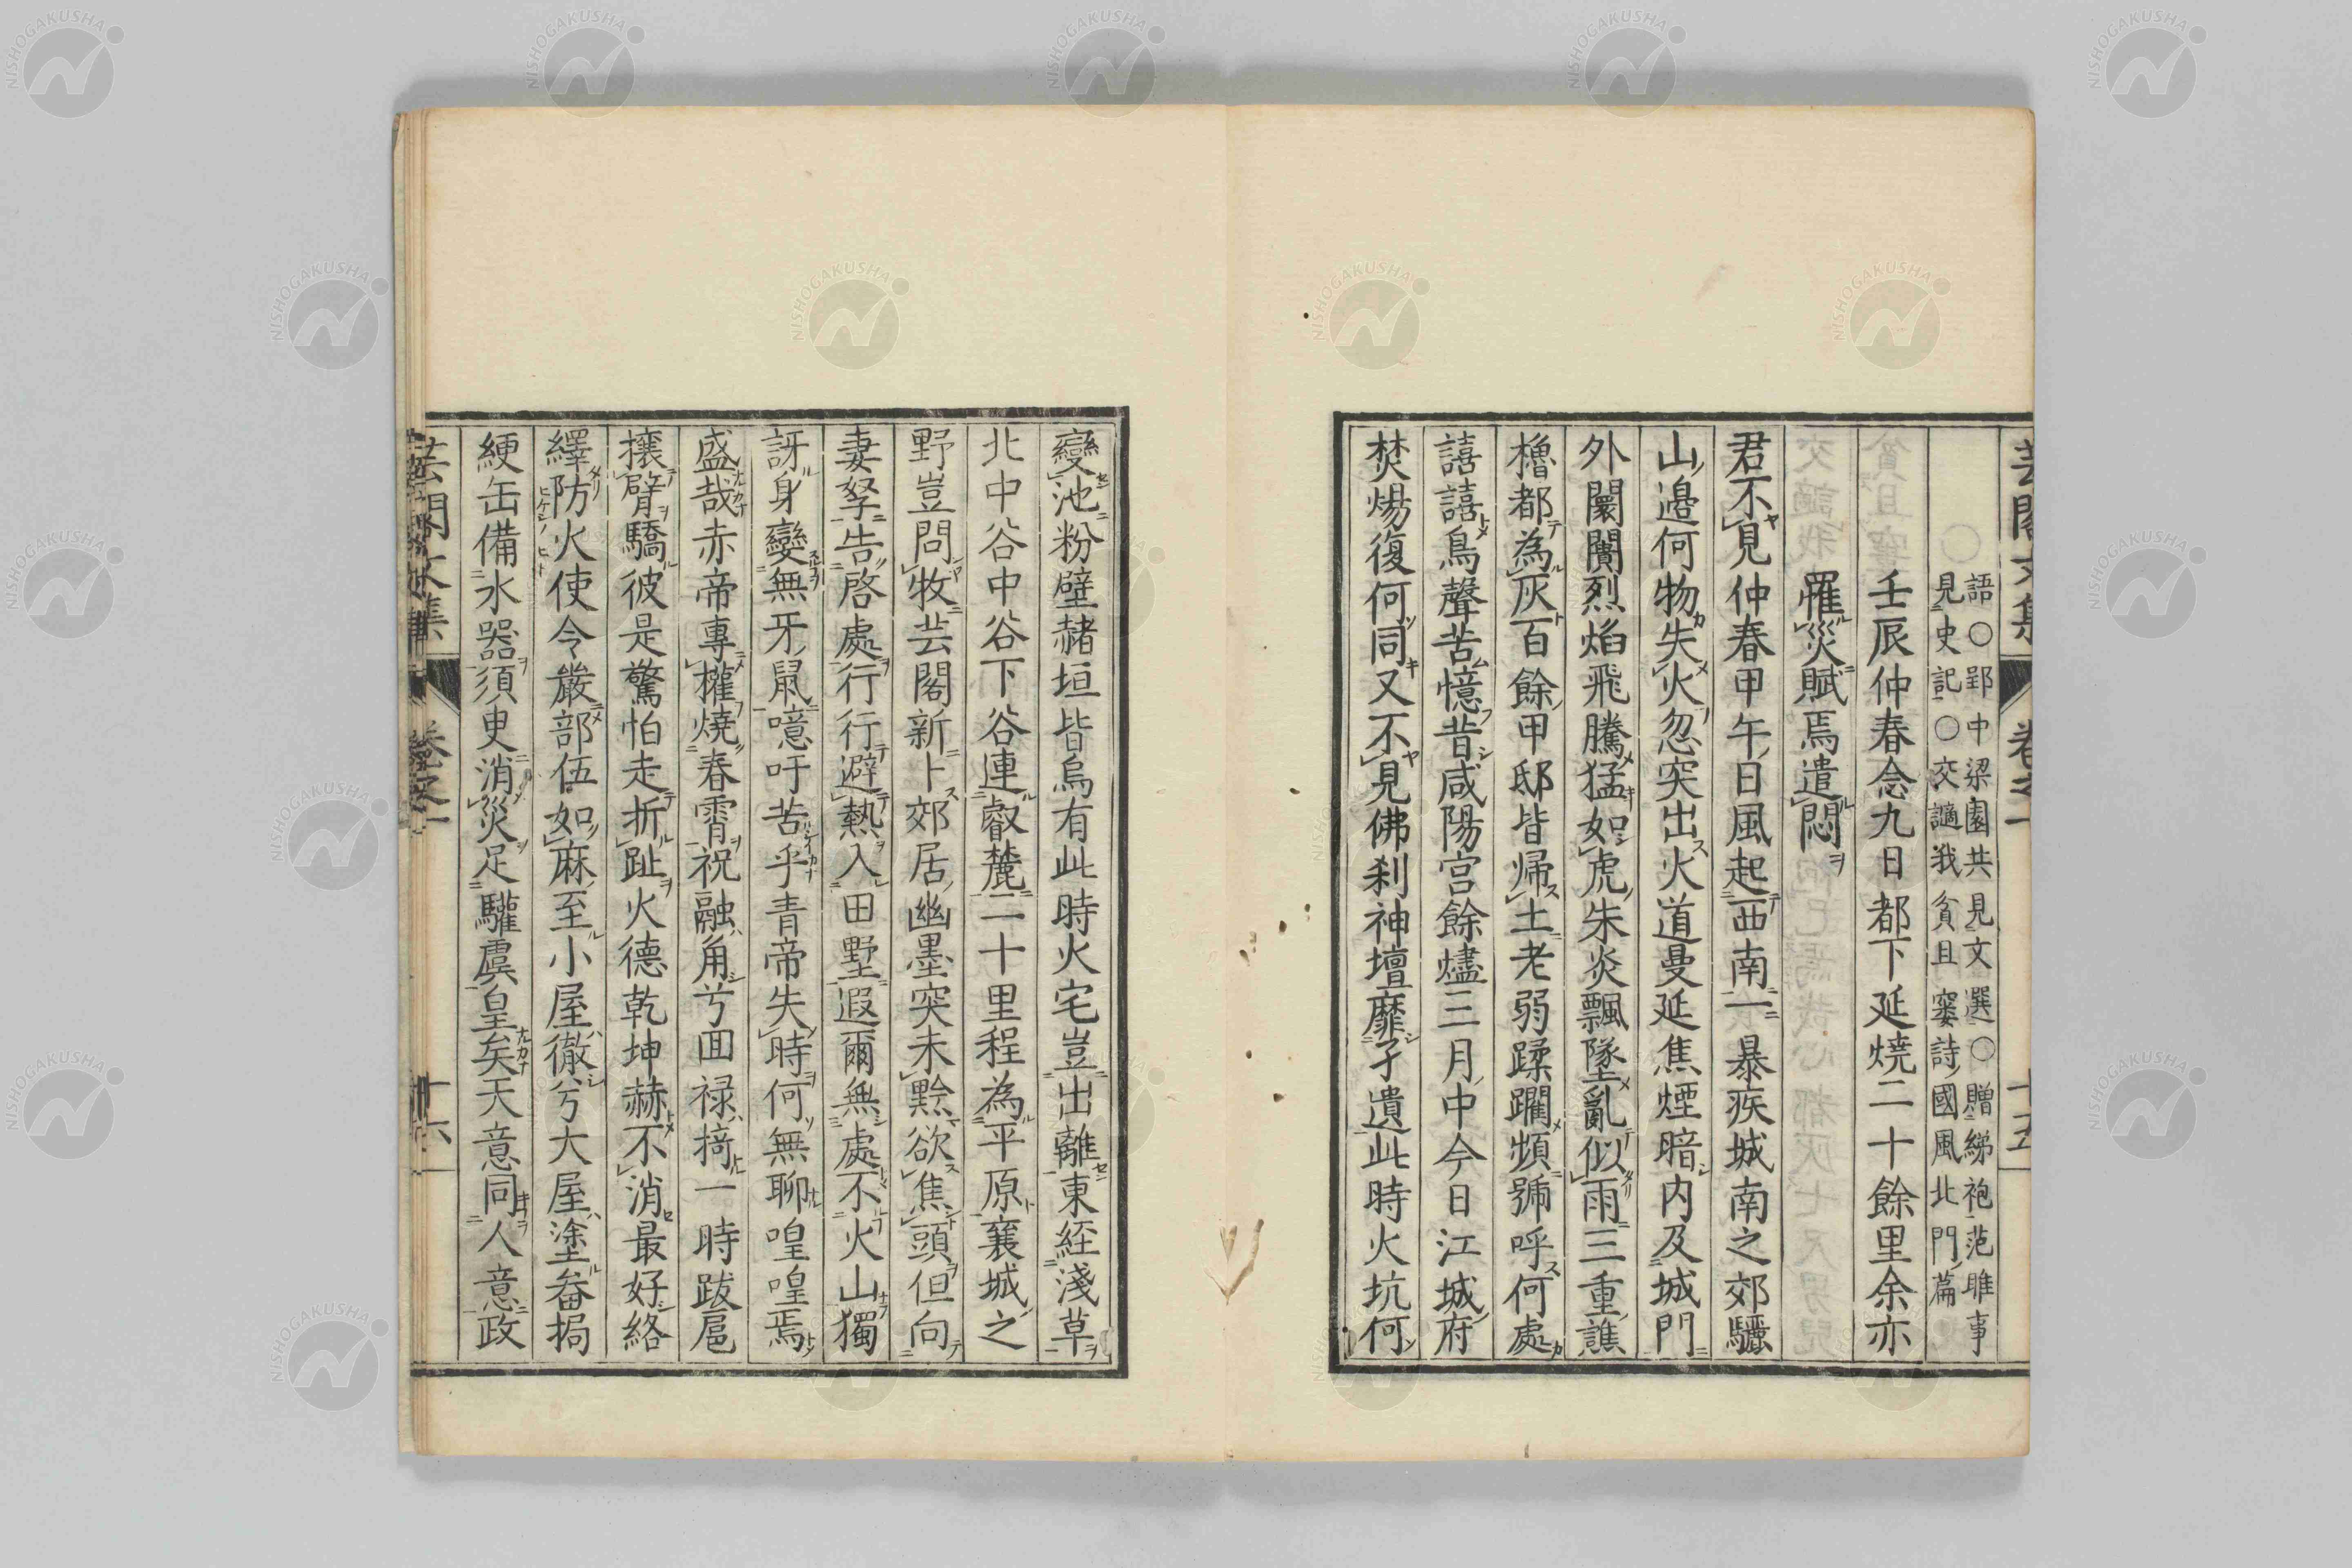 芸閣文集 卷之一 十五
語○郢中梁園共見文選○贈綈袍范雎事
見史記○交讁我貧且窶詩國風北門篇
壬辰仲春念九日都下延燒二十餘里余亦
罹災賦焉遣悶
君不見仲春甲午日風起西南一暴疾城南之郊驪
山邉何物失火忽突出火道曼延焦煙暗内及城門
外闤闠烈焰飛騰猛如虎朱炎飄墜亂似雨三重譙
櫓都為灰百餘甲邸皆帰土老弱蹂躙頻號呼何處
譆譆鳥聲苦憶昔咸陽宮餘燼三月中今日江城府
焚煬復何同又不見佛刹神壇靡孑遺此時火坑何
變池粉壁赭垣皆烏有此時火宅豈出離東経淺草
北中谷中谷下谷連叡麓二十里程為平原襄城之
野豈問牧芸閣新卜郊居幽墨突未黔欲焦頭但向
妻孥告啓處行行避熱入田墅遐爾無處不火山獨
訝身變無牙鼠噫吁苦乎青帝失時何無聊喤喤焉
盛哉赤帝專權燒春霄祝融角兮回禄掎一時跋扈
攘臂驕彼是驚怕走折趾火德乾坤赫不消最好絡
繹防火使令嚴部伍如麻至小屋徹兮大屋塗畚挶
綆缶備水器須臾消災足驩虞皇矣天意同人意政
芸閣文集 卷之一 十六
NISHOGAKUSHA